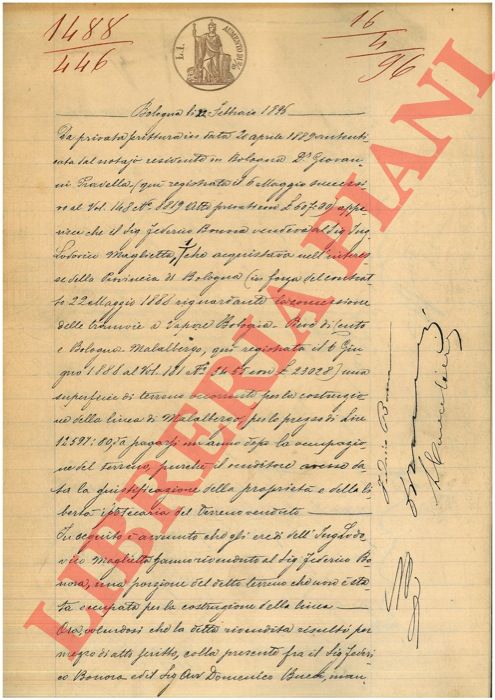 1488
446
L.1.
AUMENTO DI 2/10
16
96
Bologna li 22 Febbraio 1896
Da privata scrittura in data 20 aprile 1889 autenti-
cata dal notajo residente in Bologna Dr. Giovan-
ni Pradella (qui registrata il 6 Maggio successi-
vo al Vol. 148 No. 8819 Atti privati con £ 607:20) appa-
risce che il Sig. Federico Bonora vendeva al Sig Ing
Lodovico Maglietta, che acquistava nell'interes-
se della Provincia di Bologna (in forza del contrat-
to 22 Maggio 1888 riguardante la concessione
delle tramvie a vapore Bologna Pieve di Cento
e Bologna Malalbergo, qui registrata il 6 Giu-
gno 1888 al Vol. 121 No. 3455 con £ 23028) una
superficie di terreno occorrente per la costruzio-
ne della linea di Malalbergo per lo prezzo di Lire
12597:60, da pagarsi un anno dopo la occupazio-
ne del terreno, purchè il venditore avesse da-
ta la giustificazione della proprietà e della li-
bertà ipotecaria del terreno venduto
In seguito è avvenuto che gli eredi dell'Ing Lodo-
vico Maglietta hanno rivenduto al Sig Federico Bo-
nora, una porzione del detto terreno che non è sta-
ta occupata per la costruzione della linea
Ora, volendosi che la detta rivendita risulti per
mezzo di atto scritto, colla presente fra il Sig Federi-
co Bonora ed il Sig Avv Domenico man-
Federico Bonora
LIBRERIA PIANI